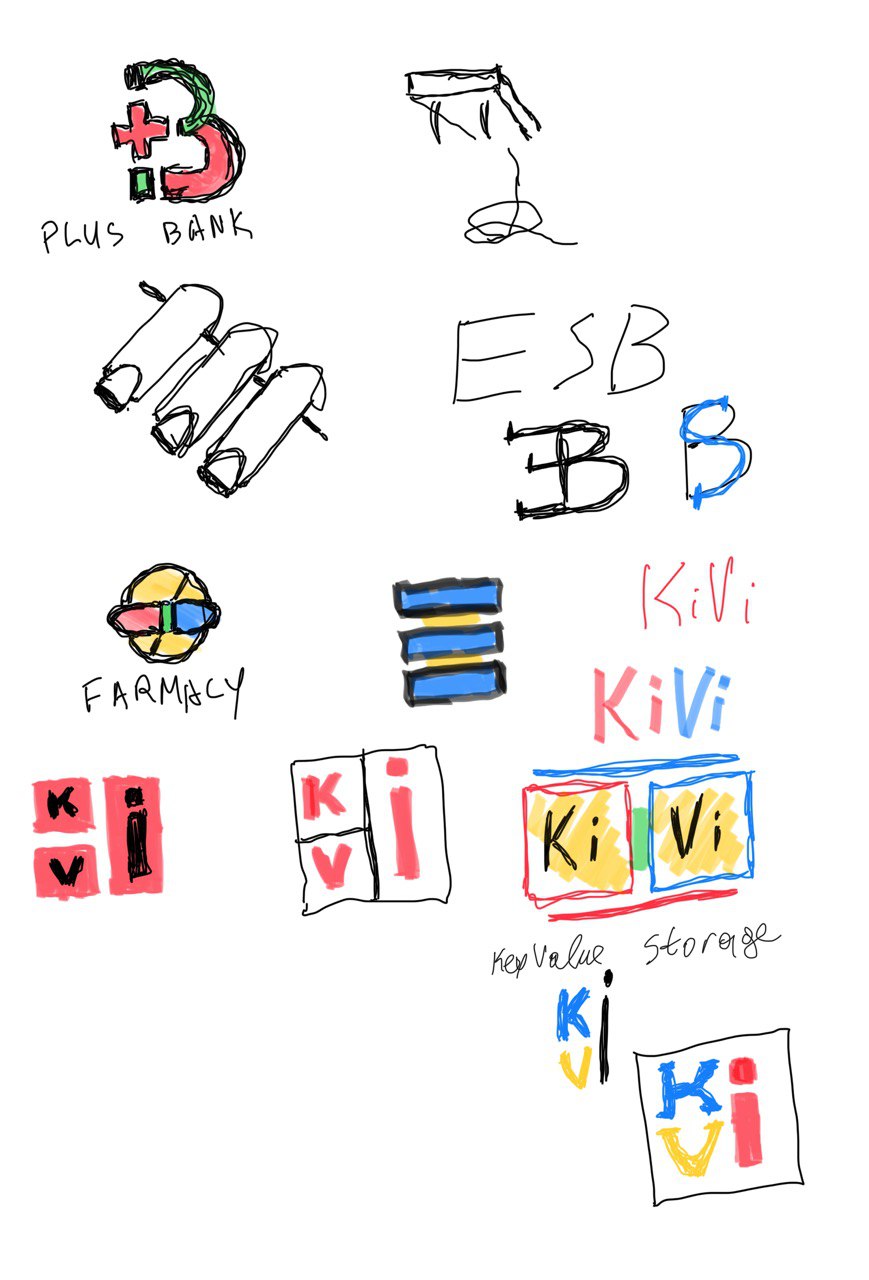 PLUS BANK
ESB
B S
FARMACY
KiVi
KiVi
K i
V
K i
V
Ki Vi
Key Value Storage
K i
V
K i
V